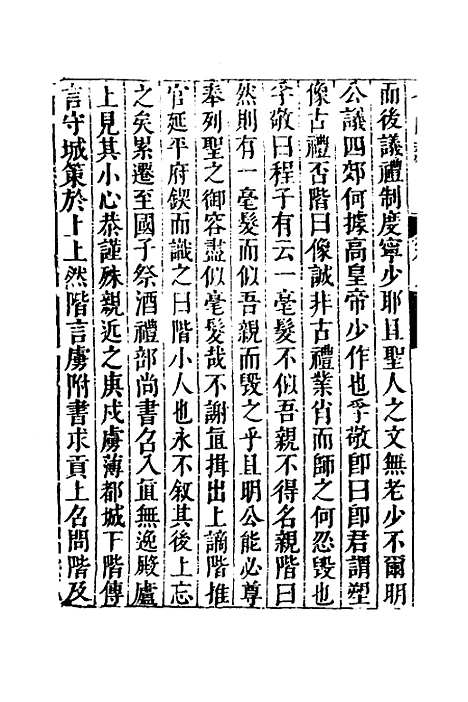 而後議禮制度寧少耶且聖人之文無老少不爾明
公議四郊何據高皇帝少作也孚敬卽曰卽君謂塑
像古禮否階曰像誠非古禮業肖而師之何忍毀也
孚敬曰程子有云一毫髮不似吾親不得名親階曰
然則有一毫髮而似吾親而毀之乎且明公能必尊
奉列聖之御容盡似毫髮哉不謝直揖出上謫階推
官延平府鍥而識之曰階小人也永不敘其後上忘
之矣累遷至國子祭酒禮部尚書名入直無逸殿廬
上見其小心恭謹殊親近之庚戌虜薄都城下階傳
言守城策於上上然階言虜附書求貢上名問階及